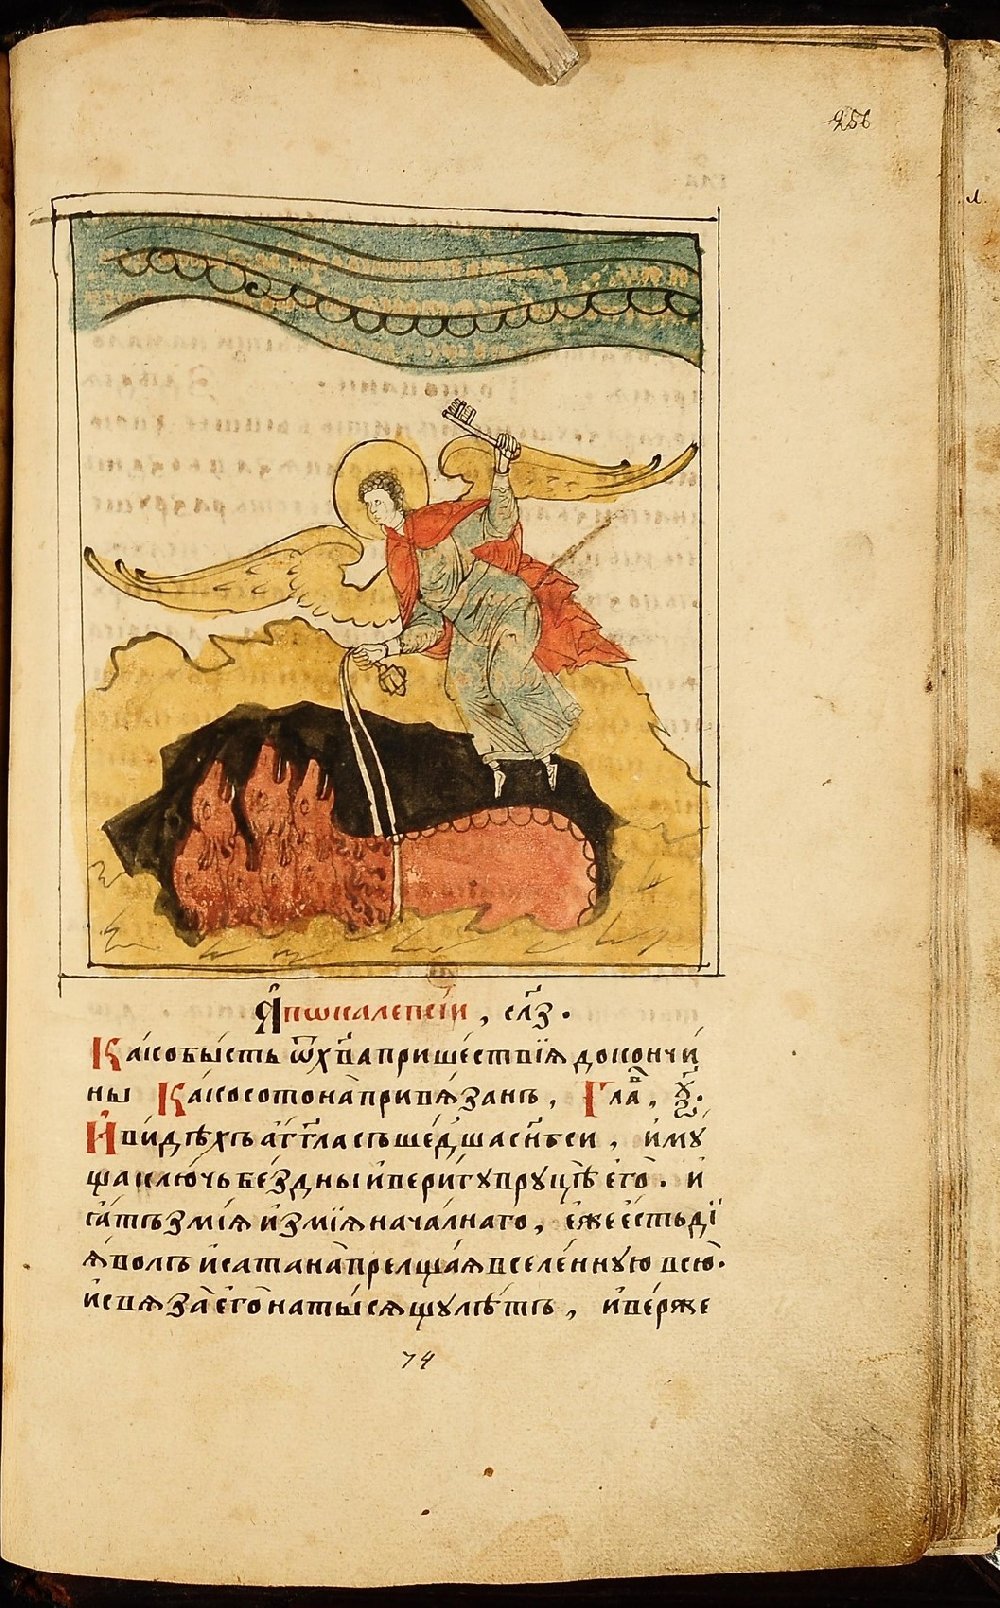 256
Апѡкалепсїи, сл҃з.
Ка́кобы́сть ѿх҃ваприше́ствїѧ доконч́и
ны Ка́косотона̀привѧ́занъ, Гла̀в,
И҆ви́дѣхъ а҆́гг҃ласъше́дшасън҃беси, и҆мꙋ́
щаклю́чьбе́здны и҆вери́гꙋпрꙋцѣ̀ є҆гѡ̀. и҆
ꙗ҆́тъзмі́ѧ и҆змі́ѧнача́лнаго, є҆́жее҆́стьдї
ѧ҆́волъ и҆сатана̀прелща́ѧвселе́ннꙋювсю̀.
и҆свѧза̀є҆го̀наты́сѧщꙋлѣ́тъ, и҆ве́рже
74